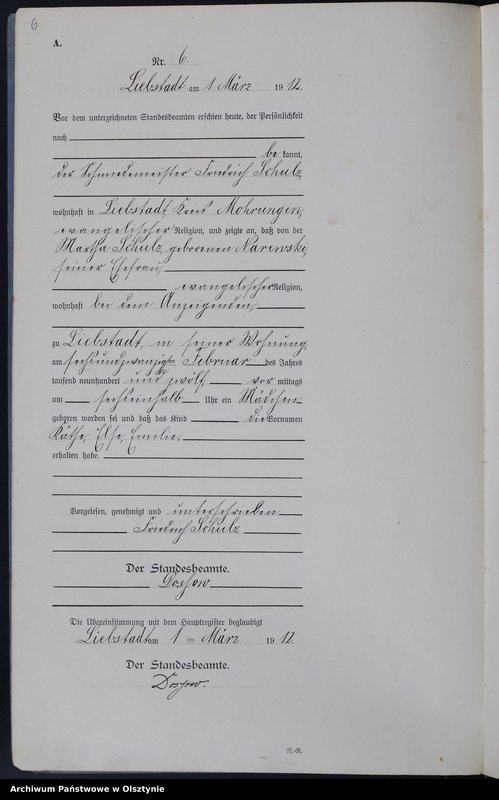 6
A.
Nr. 6.
Liebstadt am 1 März 1912.
Vor dem unterzeichneten Standesbeamten erschien heute, der Persönlichkeit
nach
be kannt,
der Schmiedemeister Friedrich Schulz,
wohnhaft in Liebstadt, Kreis Mohrungen,
evangelischer Religion, und zeigte an, daß von der
Martha Schulz, geborenen Narewski,
seiner Ehefrau,
evangelischer Religion,
wohnhaft bei dem Anzeigenden,
zu Liebstadt, in seiner Wohnung,
am sechsundzwanzigsten Februar des Jahres
tausend neunhundert und zwölf, vor mittags
um sechseinhalb Uhr ein Mädchen
geboren worden sei und daß das Kind die Vornamen
Käthe, Else, Emilie,
erhalten habe.
Vorgelesen, genehmigt und unterschrieben
Friedrich Schulz
Der Standesbeamte.
Die Übereinstimmung mit dem Hauptregister beglaubigt
Liebstadt am 1 ten März 1912.
Der Standesbeamte.
N.-R.
Archiwum Państwowe w Olsztynie